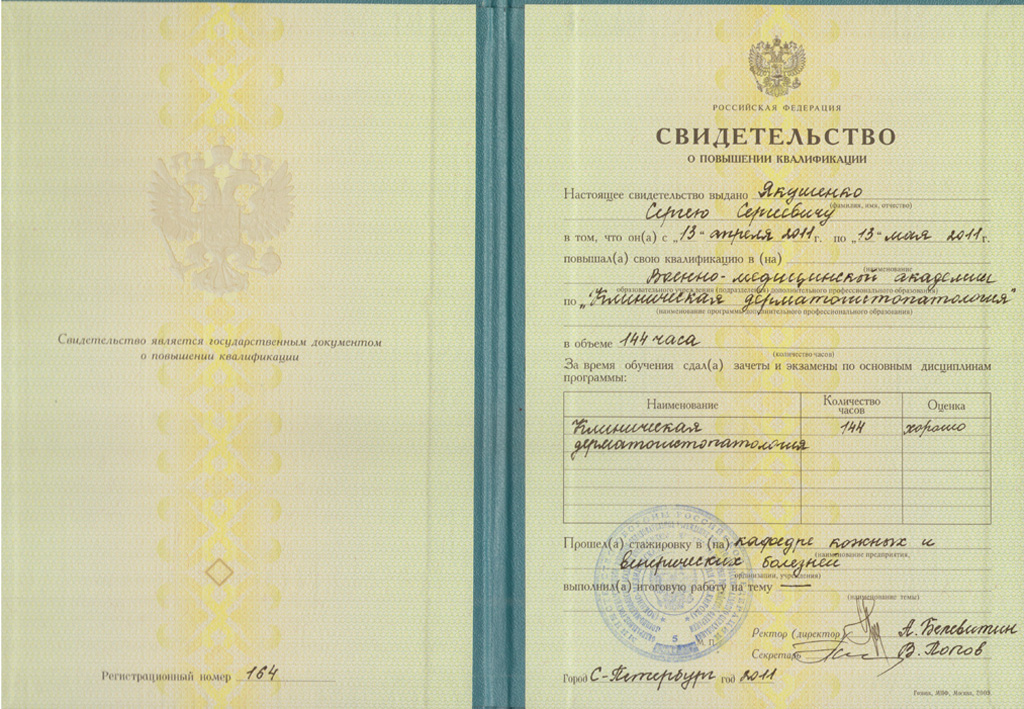 Свидетельство является государственным документом
о повышении квалификации
Регистрационный номер 164
РОССИЙСКАЯ ФЕДЕРАЦИЯ
СВИДЕТЕЛЬСТВО
О ПОВЫШЕНИИ КВАЛИФИКАЦИИ
Настоящее свидетельство выдано Якушенко
(фамилия, имя, отчество)
Сергею Сергеевичу
в том, что он(а) с „13" апреля 2011 г. по „13" мая 2011 г.
повышал(а) свою квалификацию в (на)
(наименование
Военно-медицинской академии
образовательного учреждения (подразделения) дополнительного профессионального образования)
по „Клиническая дерматогистопатология"
(наименование программы дополнительного профессионального образования)
в объеме 144 часа
(количество часов)
За время обучения сдал(а) зачеты и экзамены по основным дисциплинам
программы:
Наименование Количество часов Оценка
Клиническая 144 хорошо
дерматогистопатология
Прошел(а) стажировку в (на) кафедре кожных и
(наименование предприятия,
венерических болезней
организации, учреждения)
выполнил(а) итоговую работу на тему —
(наименование темы)
М. П.
Ректор (директор) А. Белевитин
Секретарь В. Попов
Город С-Петербург год 2011
Гознак, МПФ, Москва, 2009.